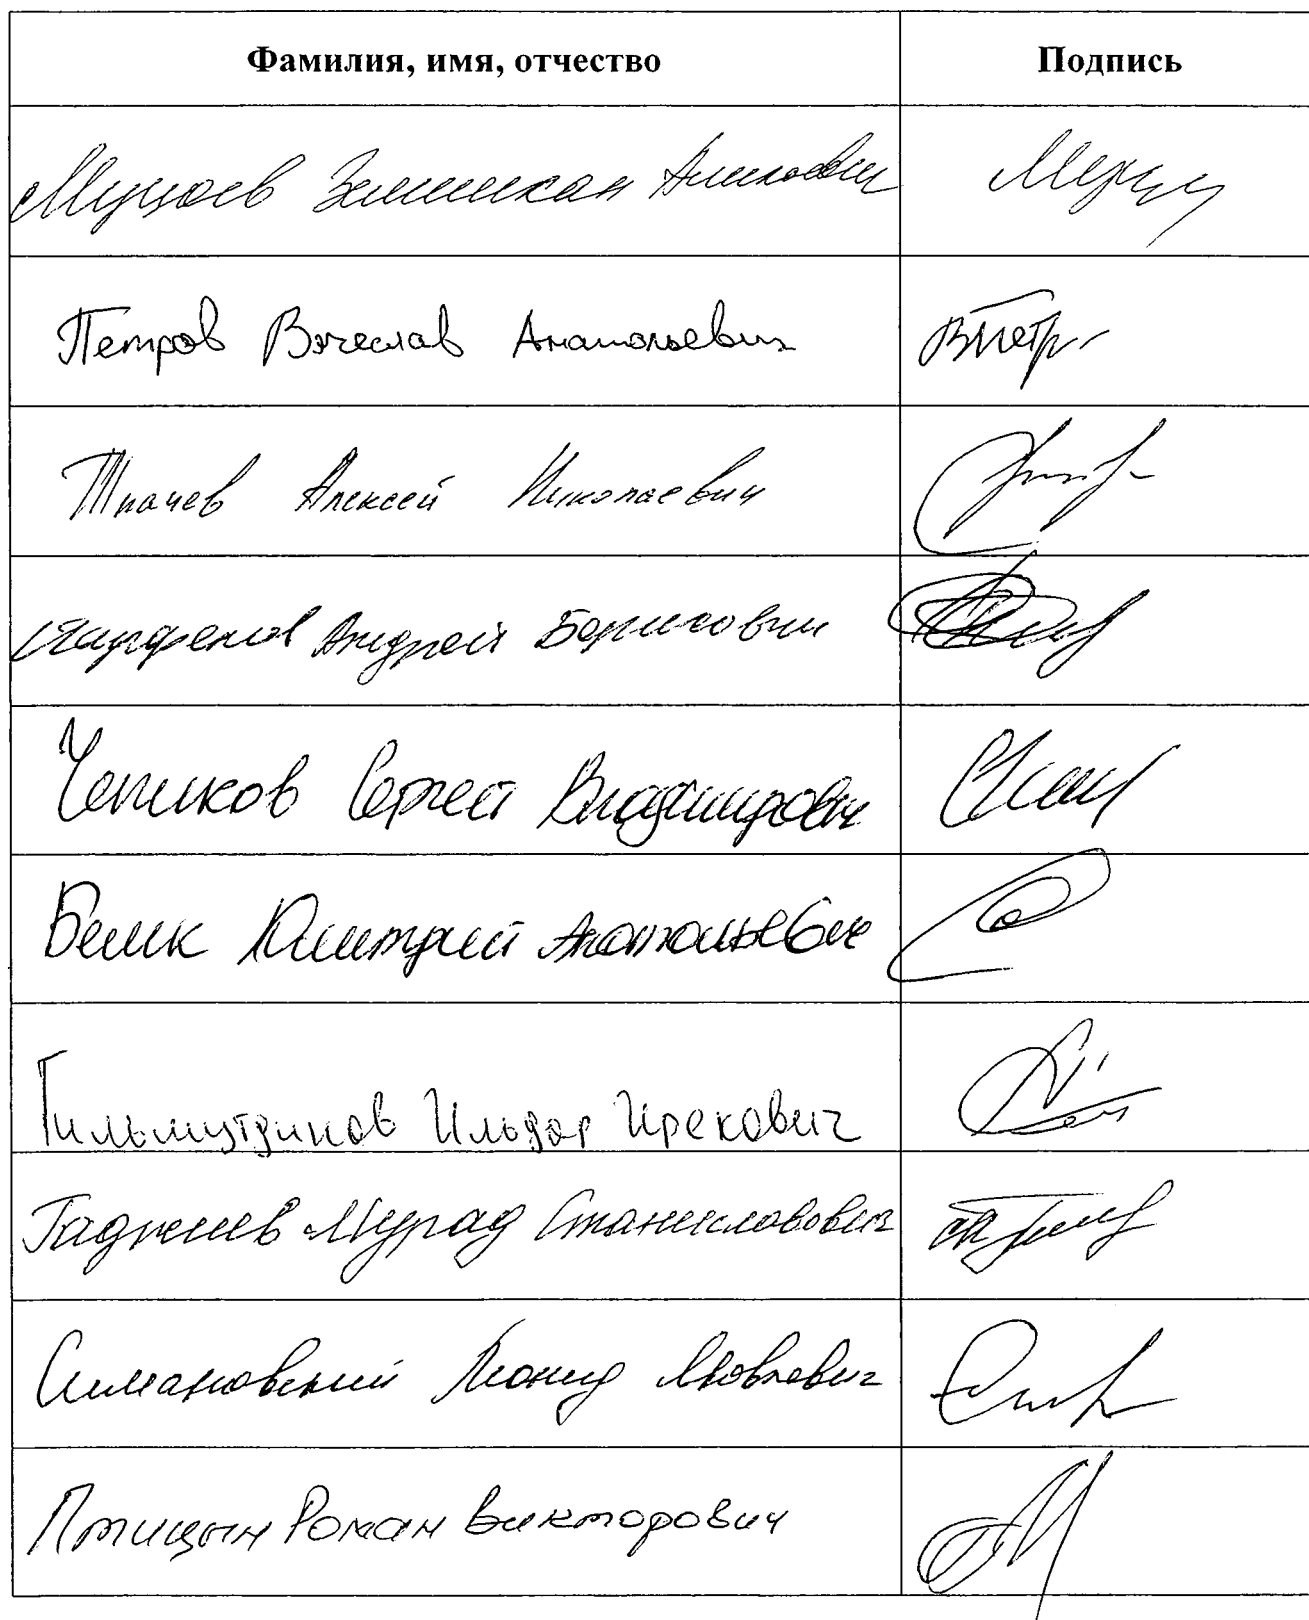 Фамилия, имя, отчество Подпись
Муцоев Зелимхан Аликоевич
Петров Вячеслав Анатольевич
Ткачев Алексей Николаевич
Парфенов Андрей Борисович
Чепиков Сергей Владимирович
Белик Дмитрий Анатольевич
Гильмутдинов Ильдар Ирекович
Гаджиев Мурад Станиславович
Симановский Леонид Яковлевич
Птицын Роман Викторович